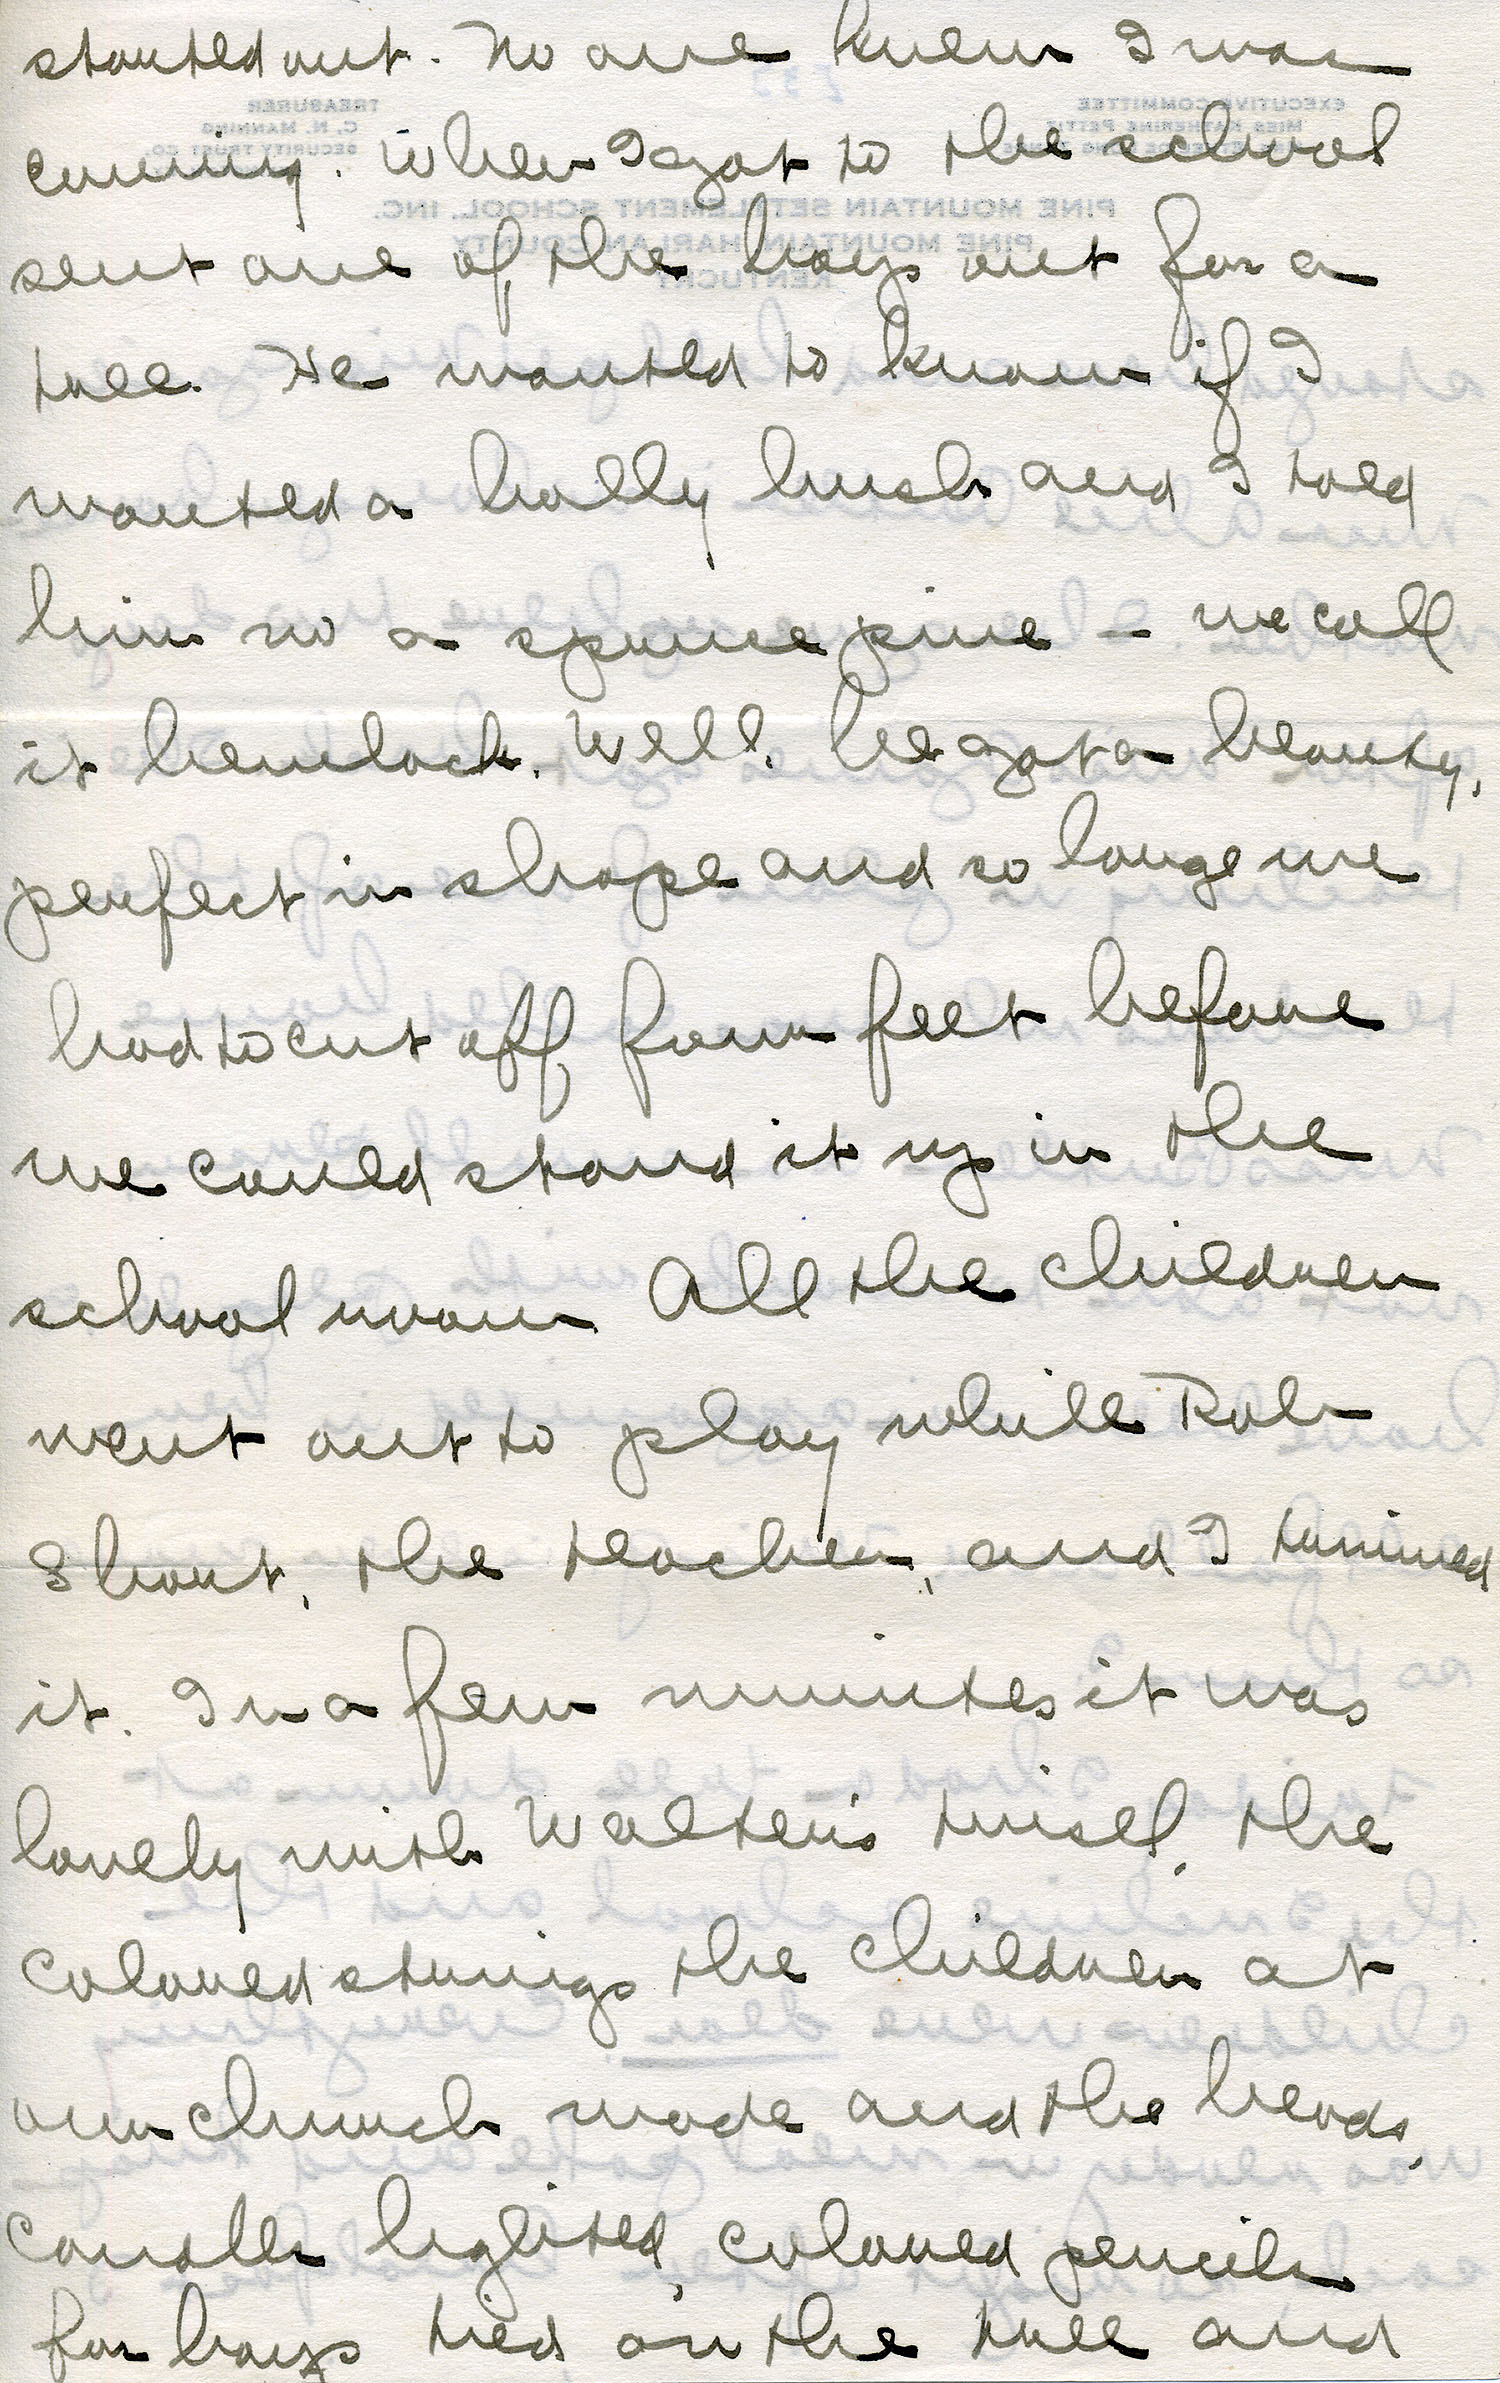 started out. No one knew I was
coming. When I got to the school
sent one of the boys out for a
tree. He wanted to know if I
wanted a holly bush and I told
him no a spruce pine — we call
it hemlock. Well, he got a beauty,
perfect in shape and so large we
had to cut off four feet before
we could stand it up in the
school room. All the children
went out to play while Rob
Short, the teacher, and I trimmed
it. In a few minutes it was
lovely with Walter's tinsel, the
colored strings the children at
our church made and the beads,
candles lighted, colored pencils
for boys tied on the tree and
EXECUTIVE COMMITTEE
MISS KATHERINE PETTIT
TREASURER
C. N. MANNING
SECURITY TRUST CO.
PINE MOUNTAIN SETTLEMENT SCHOOL, INC.
PINE MOUNTAIN, HARLAN COUNTY
KENTUCKY